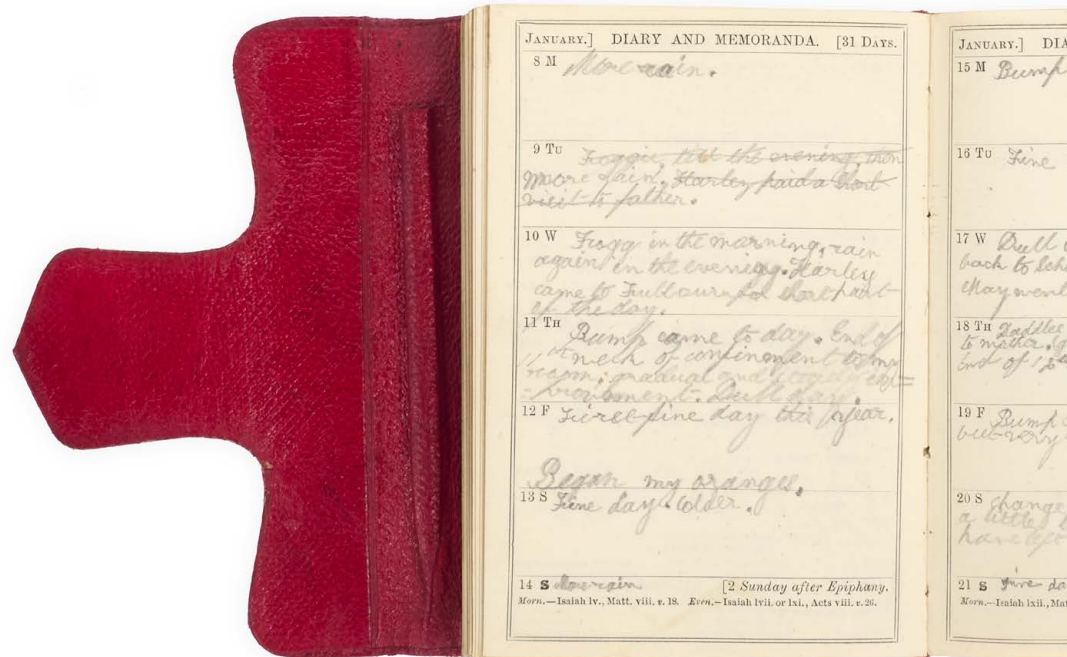 JANUARY.] DIARY AND MEMORANDA. [31 DAYS.
8 M More rain.
9 TU Foggie, till the evening, then
moore rain. Harley paid a short
visit to father.
10 W Frogg in the marning, rain
again in the evenigg. Harley
came to Fulbourn for short part
of the day.
11 TH Bump came to day. End of
11th week of confinement to my
room; gradual and steady im=
=provement. Dull day.
12 F First fine day this year.
Began my oranges.
13 S Fine day. Colder.
14 S More rain [2 Sunday after Epiphany.
Morn.—Isaiah lv., Matt. viii. v. 18. Even.—Isaiah lvii. or lxi., Acts viii. v. 26.
JANUARY.] DIA
15 M Bump
16 TU Fine
17 W Dull
back to Sch
May went
18 TH
to mother.
End of 12
19 F Bump
but very
20 S change
a little
have
21 S Fine da
Morn.—Isaiah lxii., Mat